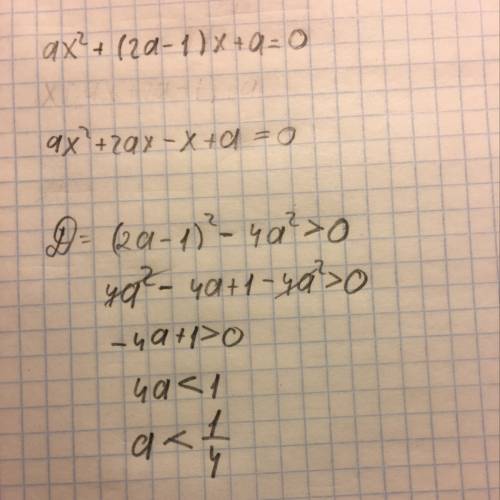 ax² + (2a-1)x + a = 0
ax² + 2ax - x + a = 0
D = (2a-1)² - 4a² > 0
4a² - 4a + 1 - 4a² > 0
-4a + 1 > 0
4a < 1
a < 1/4